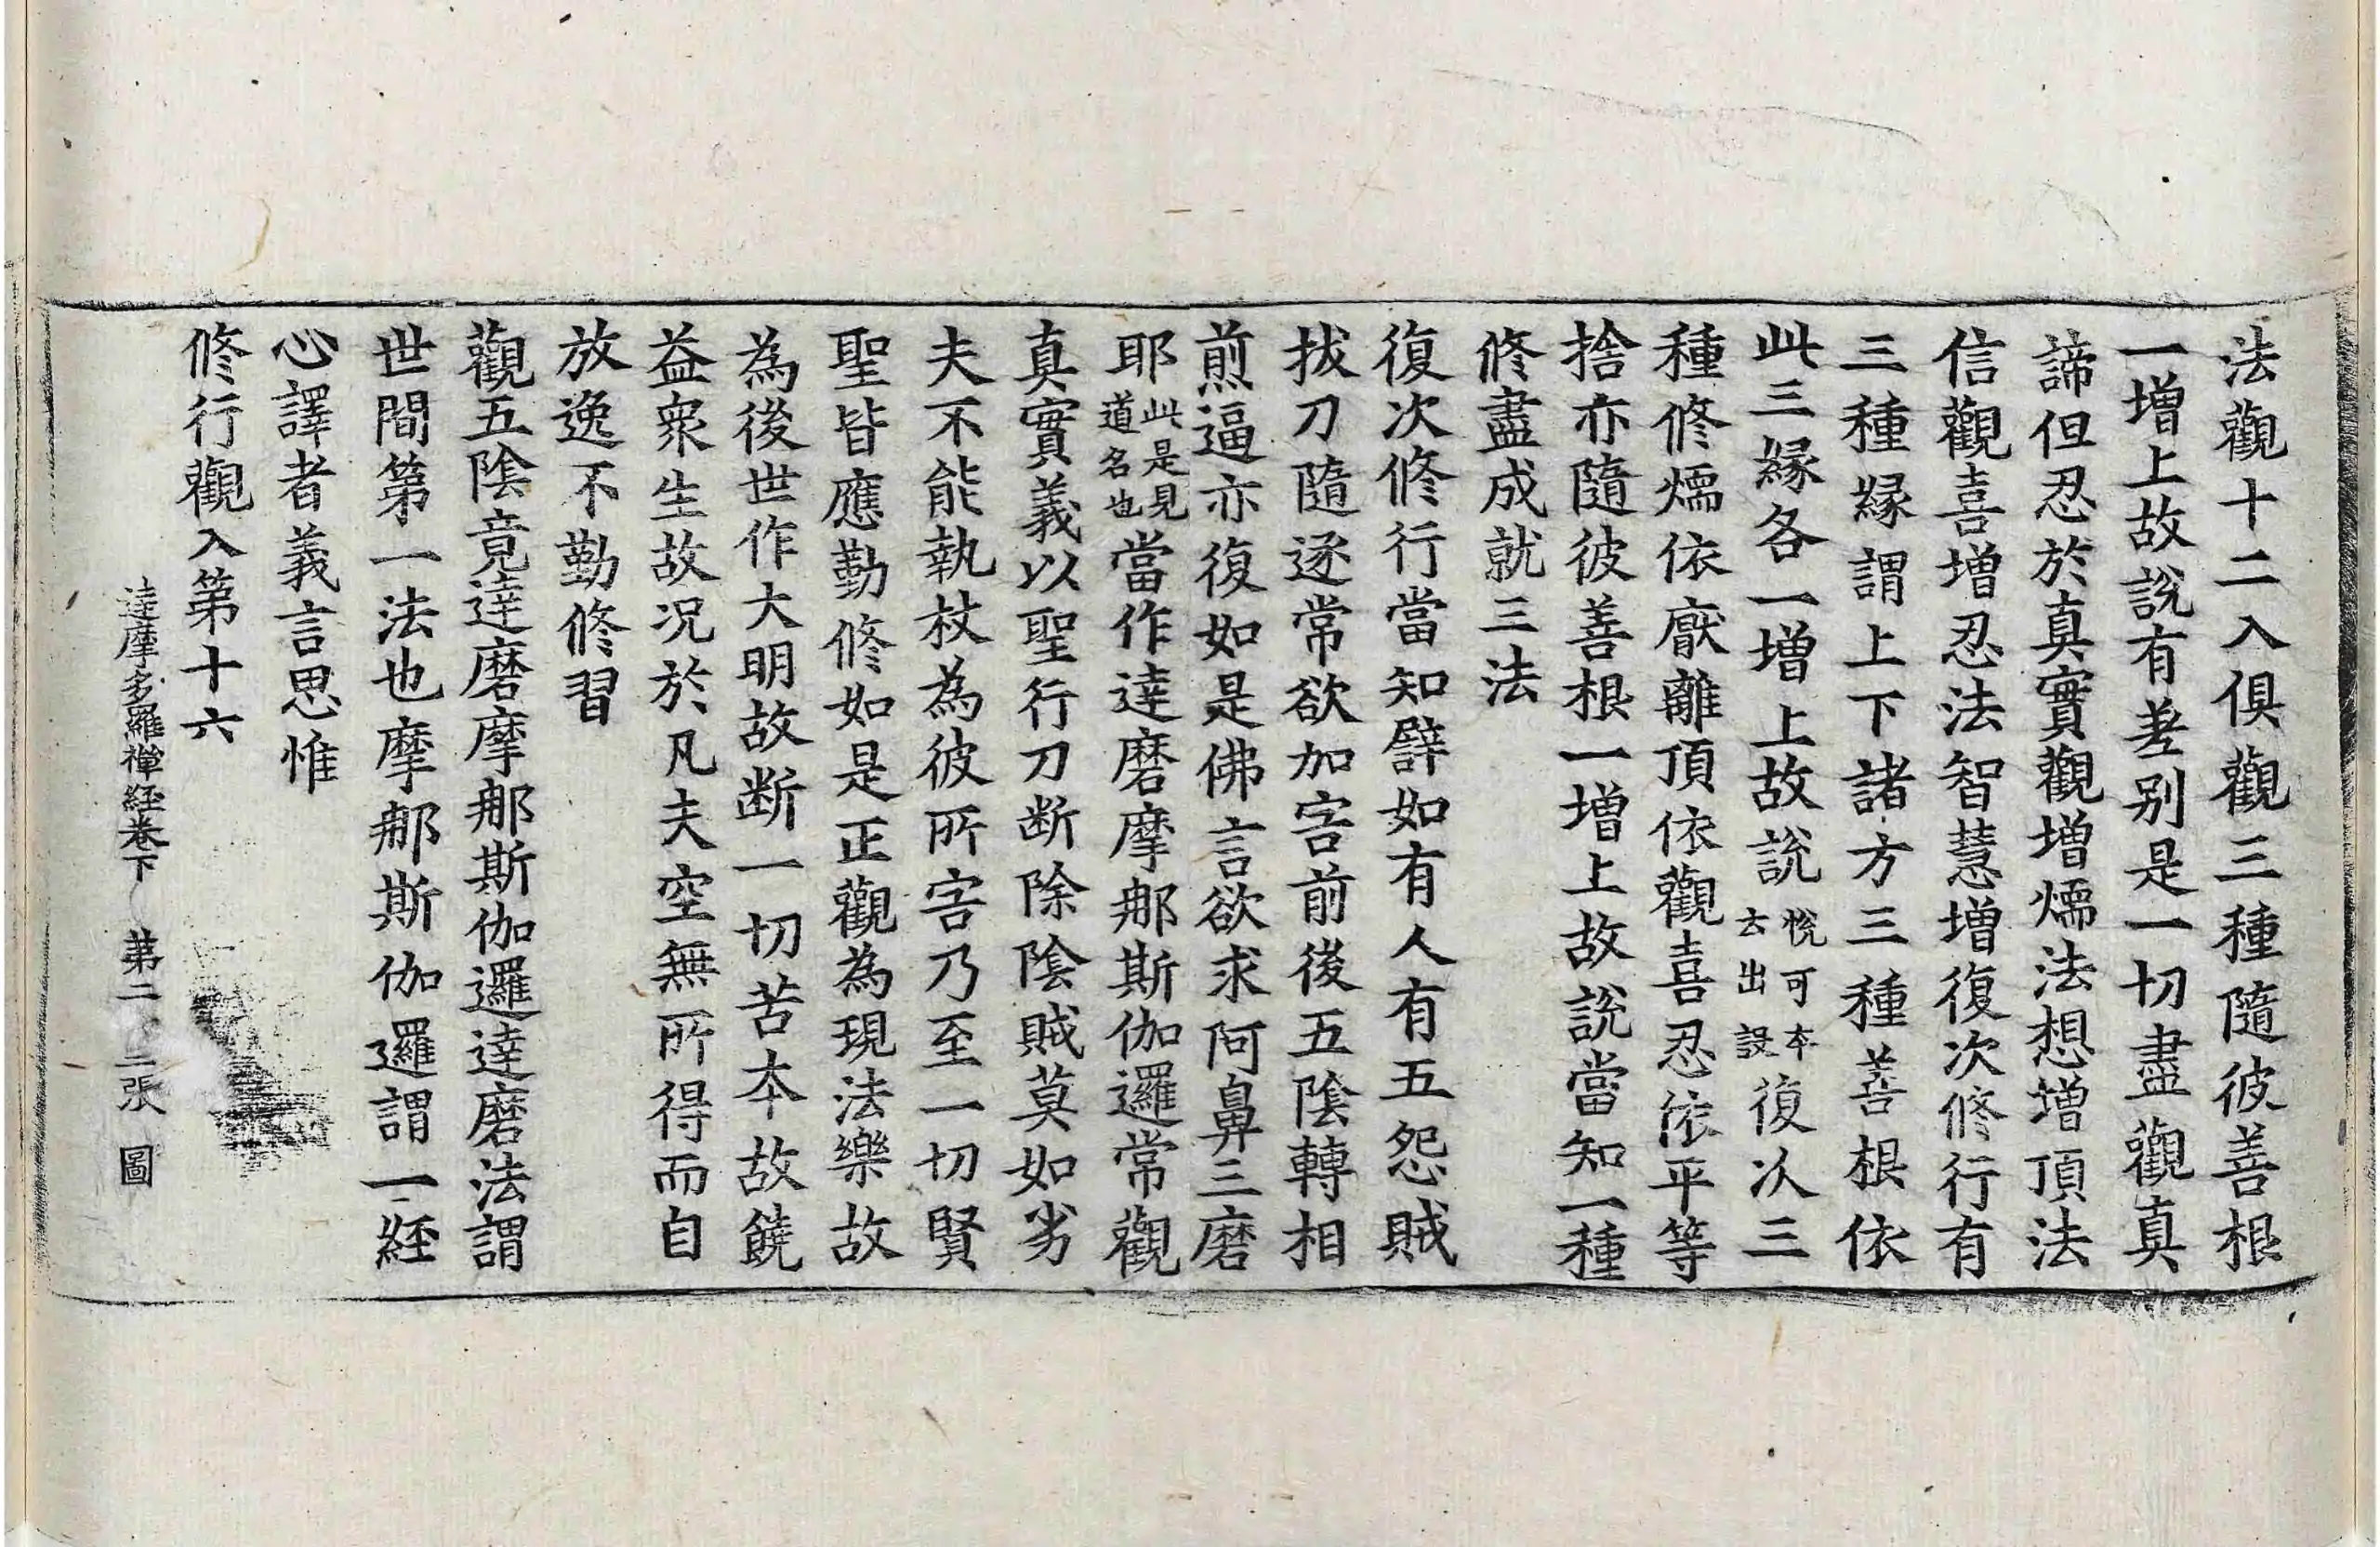 法觀十二入俱觀三種隨彼善根
一增上故說有差別是一切盡觀真
諦但忍於真實觀增煗法想增頂法
信觀喜增忍法智慧增復次修行有
三種緣謂上下諸方三種善根依
此三緣各一增上故說悅可本去出設復次三
種修煗依厭離頂依觀喜忍依平等
捨亦隨彼善根一增上故說當知一種
修盡成就三法
復次修行當知譬如有人有五怨賊
拔刀隨逐常欲加害前後五陰轉相
煎逼亦復如是佛言欲求阿鼻三磨
耶此是見道名也當作達磨摩那斯伽邏常觀
真實義以聖行刀斷除陰賊莫如劣
夫不能執杖為彼所害乃至一切賢
聖皆應勤修如是正觀為現法樂故
為後世作大明故断一切苦本故饒
益眾生故況於凡夫空無所得而自
放逸不勤修習
觀五陰竟達磨摩那斯伽邏達磨法謂
世間第一法也摩那斯伽邏謂一経
心譯者義言思惟
修行觀入第十六
達摩多羅禪経卷下 第二 二張 圖